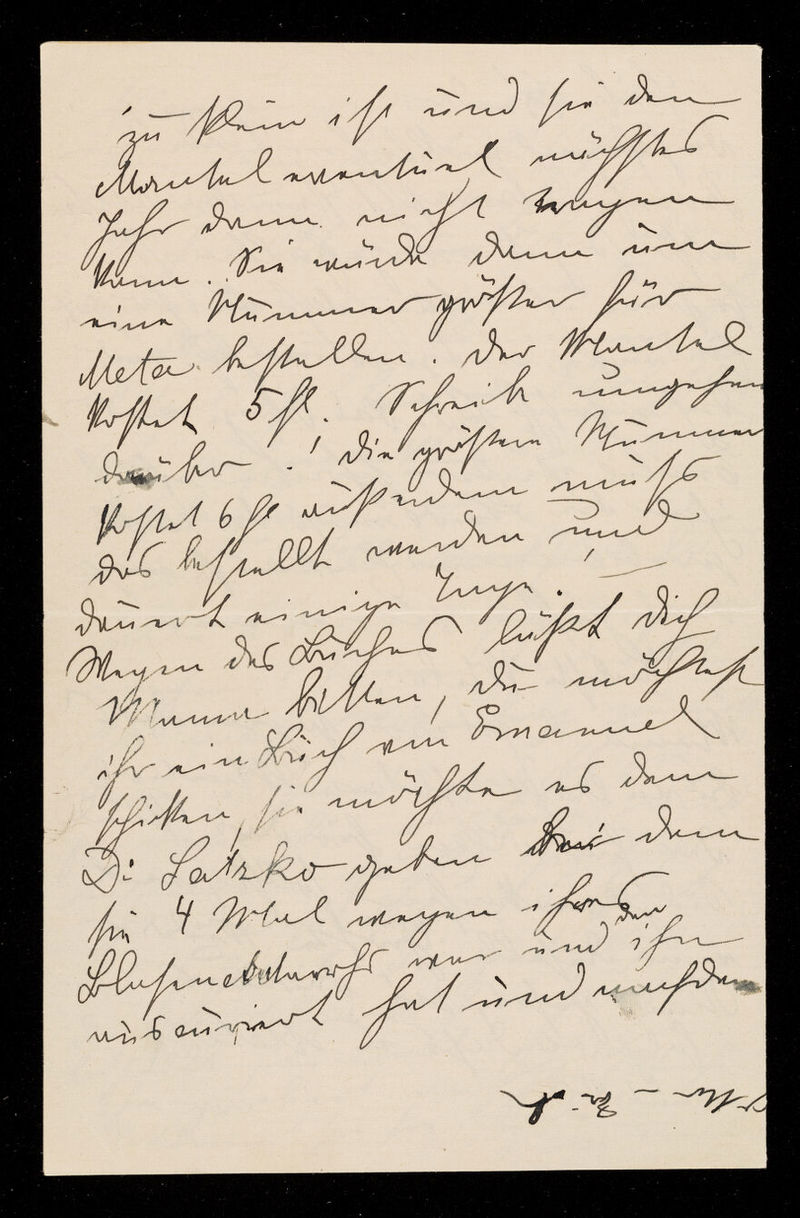 zu klein ist und sie den
Mantel eventuel nächstes
Jahr dann nicht tragen
kann. Sie würde dann um
eine Nummer größer für
Meta bestellen. Der Mantel
kostet 5 fl. Schreib umgehen
darüber! Die größere Nummer
kostet 6 fl außerdem muß
das bestellt werden und
dauert einige Tage. –
Wegen des Buches läßt dich
Mama bitten, du möchtest
ihr ein Buch von Emanuel
schicken, sie möchte es dem
Dr Latzko geben bei dem
sie 4 Mal wegen ihres
Blasencatarrhs war und der ihn
auscuriert hat und nachdem